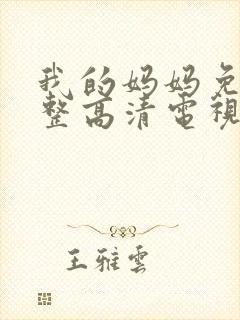 我的妈妈免
整高清電視
王雅雲